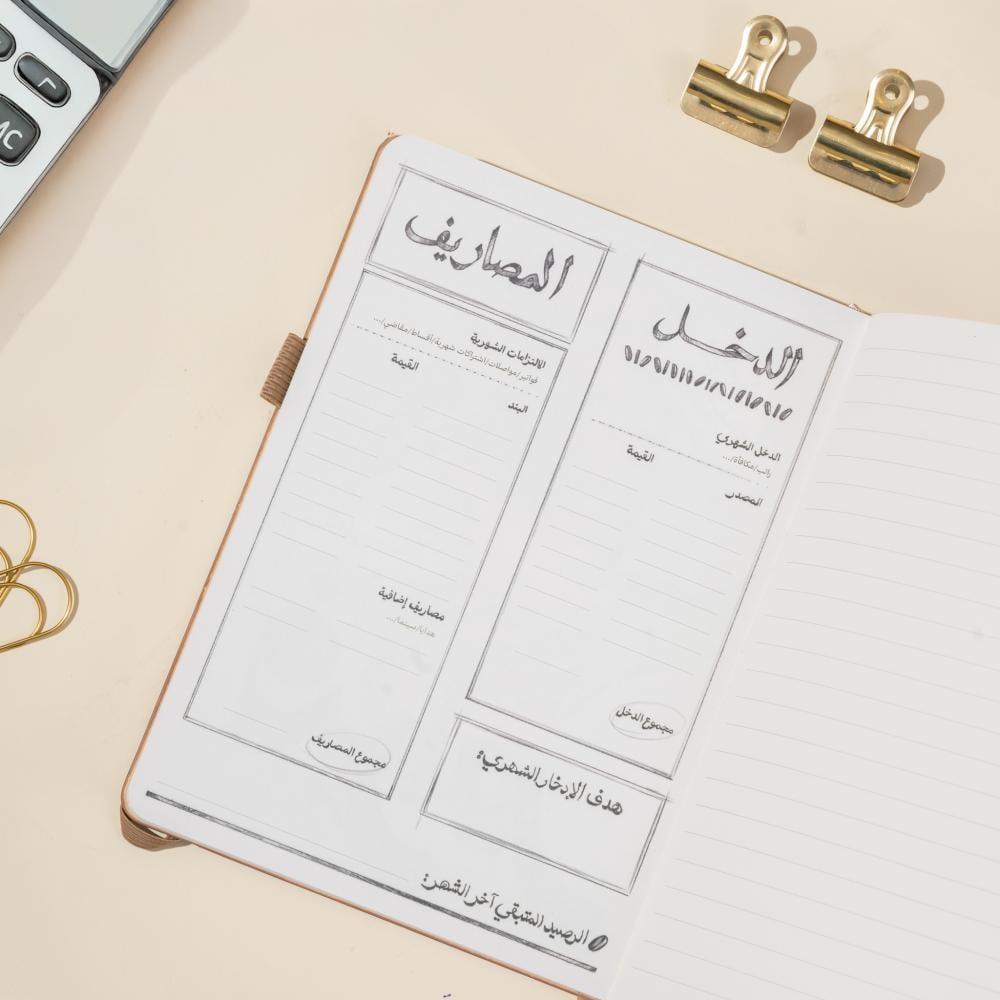 الدخل
الدخل الشهري
راتب/مكافأة/...
المصدر
القيمة
مجموع الدخل
هدف الإدخار الشهري:
المصاريف
الالتزامات الشهرية
فواتير/مواصلات/اشتراكات شهرية/أقساط/مقاضي/...
البند
القيمة
مصاريف إضافية
هدايا/سينما/...
مجموع المصاريف
الرصيد المتبقي آخر الشهر:
AC